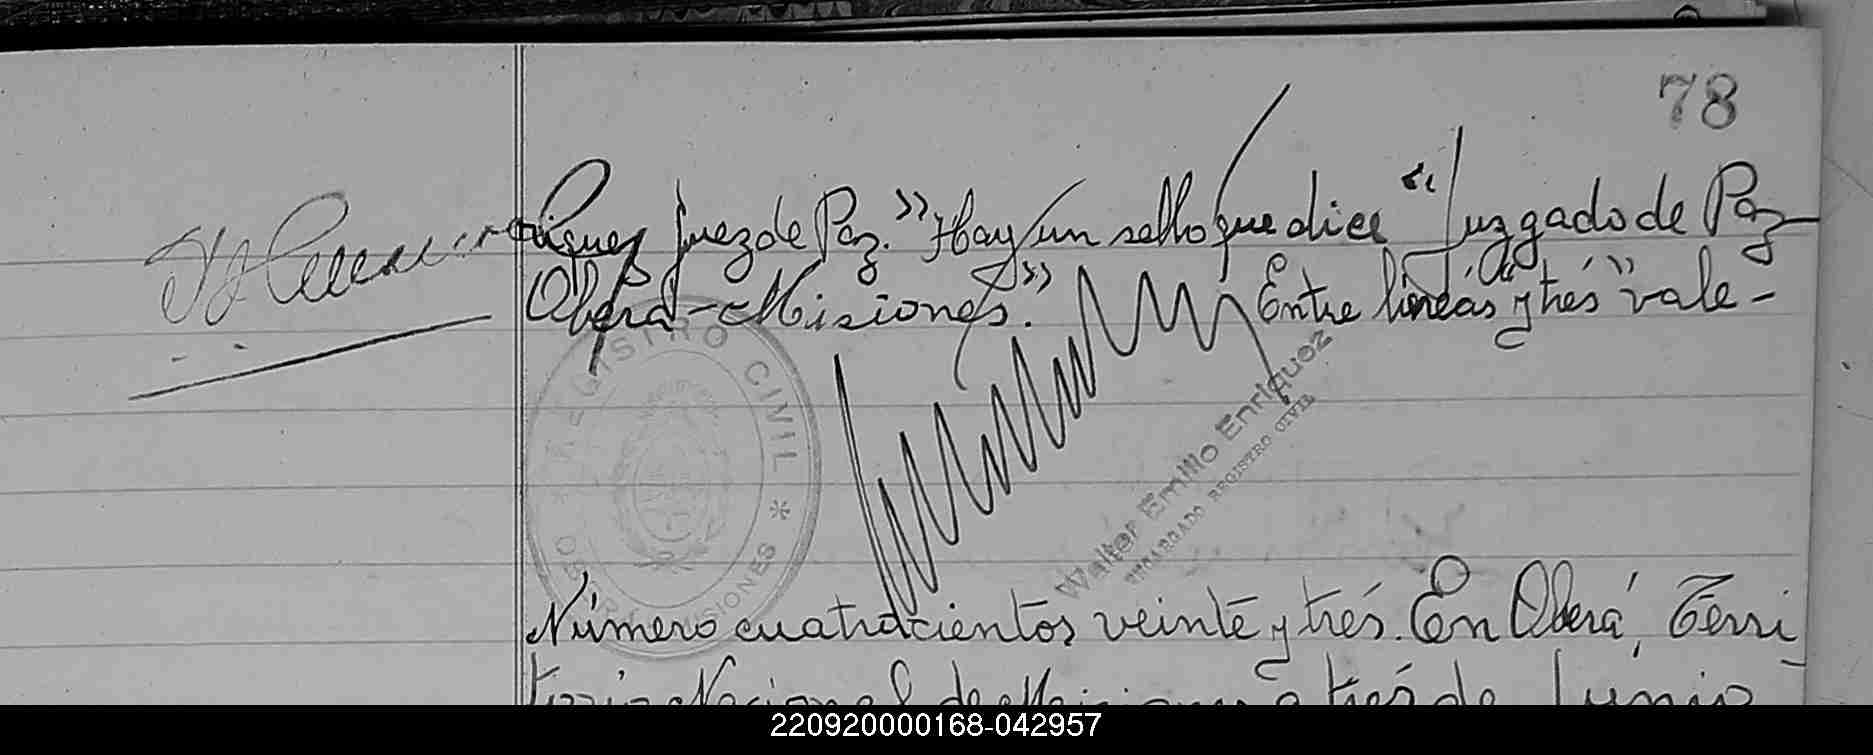 78
riguez Juez de Paz." Hay un sello que dice "Juzgado de Paz
Oberá-Misiones." Entre líneas "y trés" vale-
REGISTRO CIVIL
* OBERÁ MISIONES *
Walter Emilio Enriquez
ENCARGADO REGISTRO CIVIL
Número cuatrocientos veinte y trés. En Oberá, Terri
torio Nacional de Misiones a trés de Junio
220920000168-042957